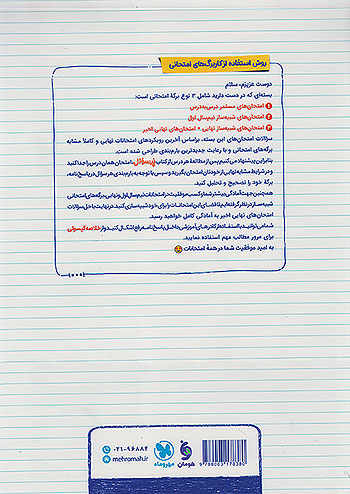 روش استفاده از کاربرگ‌های امتحانی
دوست عزیزم، سلام
بسته‌ای که در دست دارید شامل ۳ نوع برگهٔ امتحانی است:
۱ امتحان‌های مستمر درس‌به‌درس
۲ امتحان‌های شبه‌ساز نیم‌سال اول
۳ امتحان‌های شبه‌ساز نهایی + امتحان‌های نهایی اخیر
سؤالات امتحان‌های این بسته، براساس آخرین رویکردهای امتحانات نهایی و کاملاً مشابه
برگه‌های امتحانی و با رعایت جدیدترین بارم‌بندی طراحی شده است.
بنابراین پیشنهاد می‌کنیم پس از مطالعهٔ هر درس از کتاب، امتحان همان درس را جدا کنید
و در شرایط مشابه نهایی از خودتان امتحان بگیرید و سپس با توجه به بارم‌بندی هر سؤال در پاسخ‌نامه،
برگهٔ خود را تصحیح و تحلیل کنید.
همچنین جهت آمادگی بیشتر شما و کسب موفقیت در امتحانات نیم‌سال اول و نهایی، برگه‌های امتحانی
شبه‌ساز در نظر گرفته‌ایم تا فضای این امتحانات را برای خود شبیه‌سازی کنید. در نهایت با حل سؤالات
امتحان‌های نهایی اخیر به آمادگی کامل خواهید رسید.
شما می‌توانید با استفاده از کادرهای آموزشی داخل پاسخ‌نامه رفع اشکال کنید و از خلاصه کپسولی
برای مرور مطالب مهم استفاده نمایید.
به امید موفقیت شما در همهٔ امتحانات
۰۲۱-۹۶۸۸۴
mehromah.ir
مهروماه
هومان
9 786003 178380